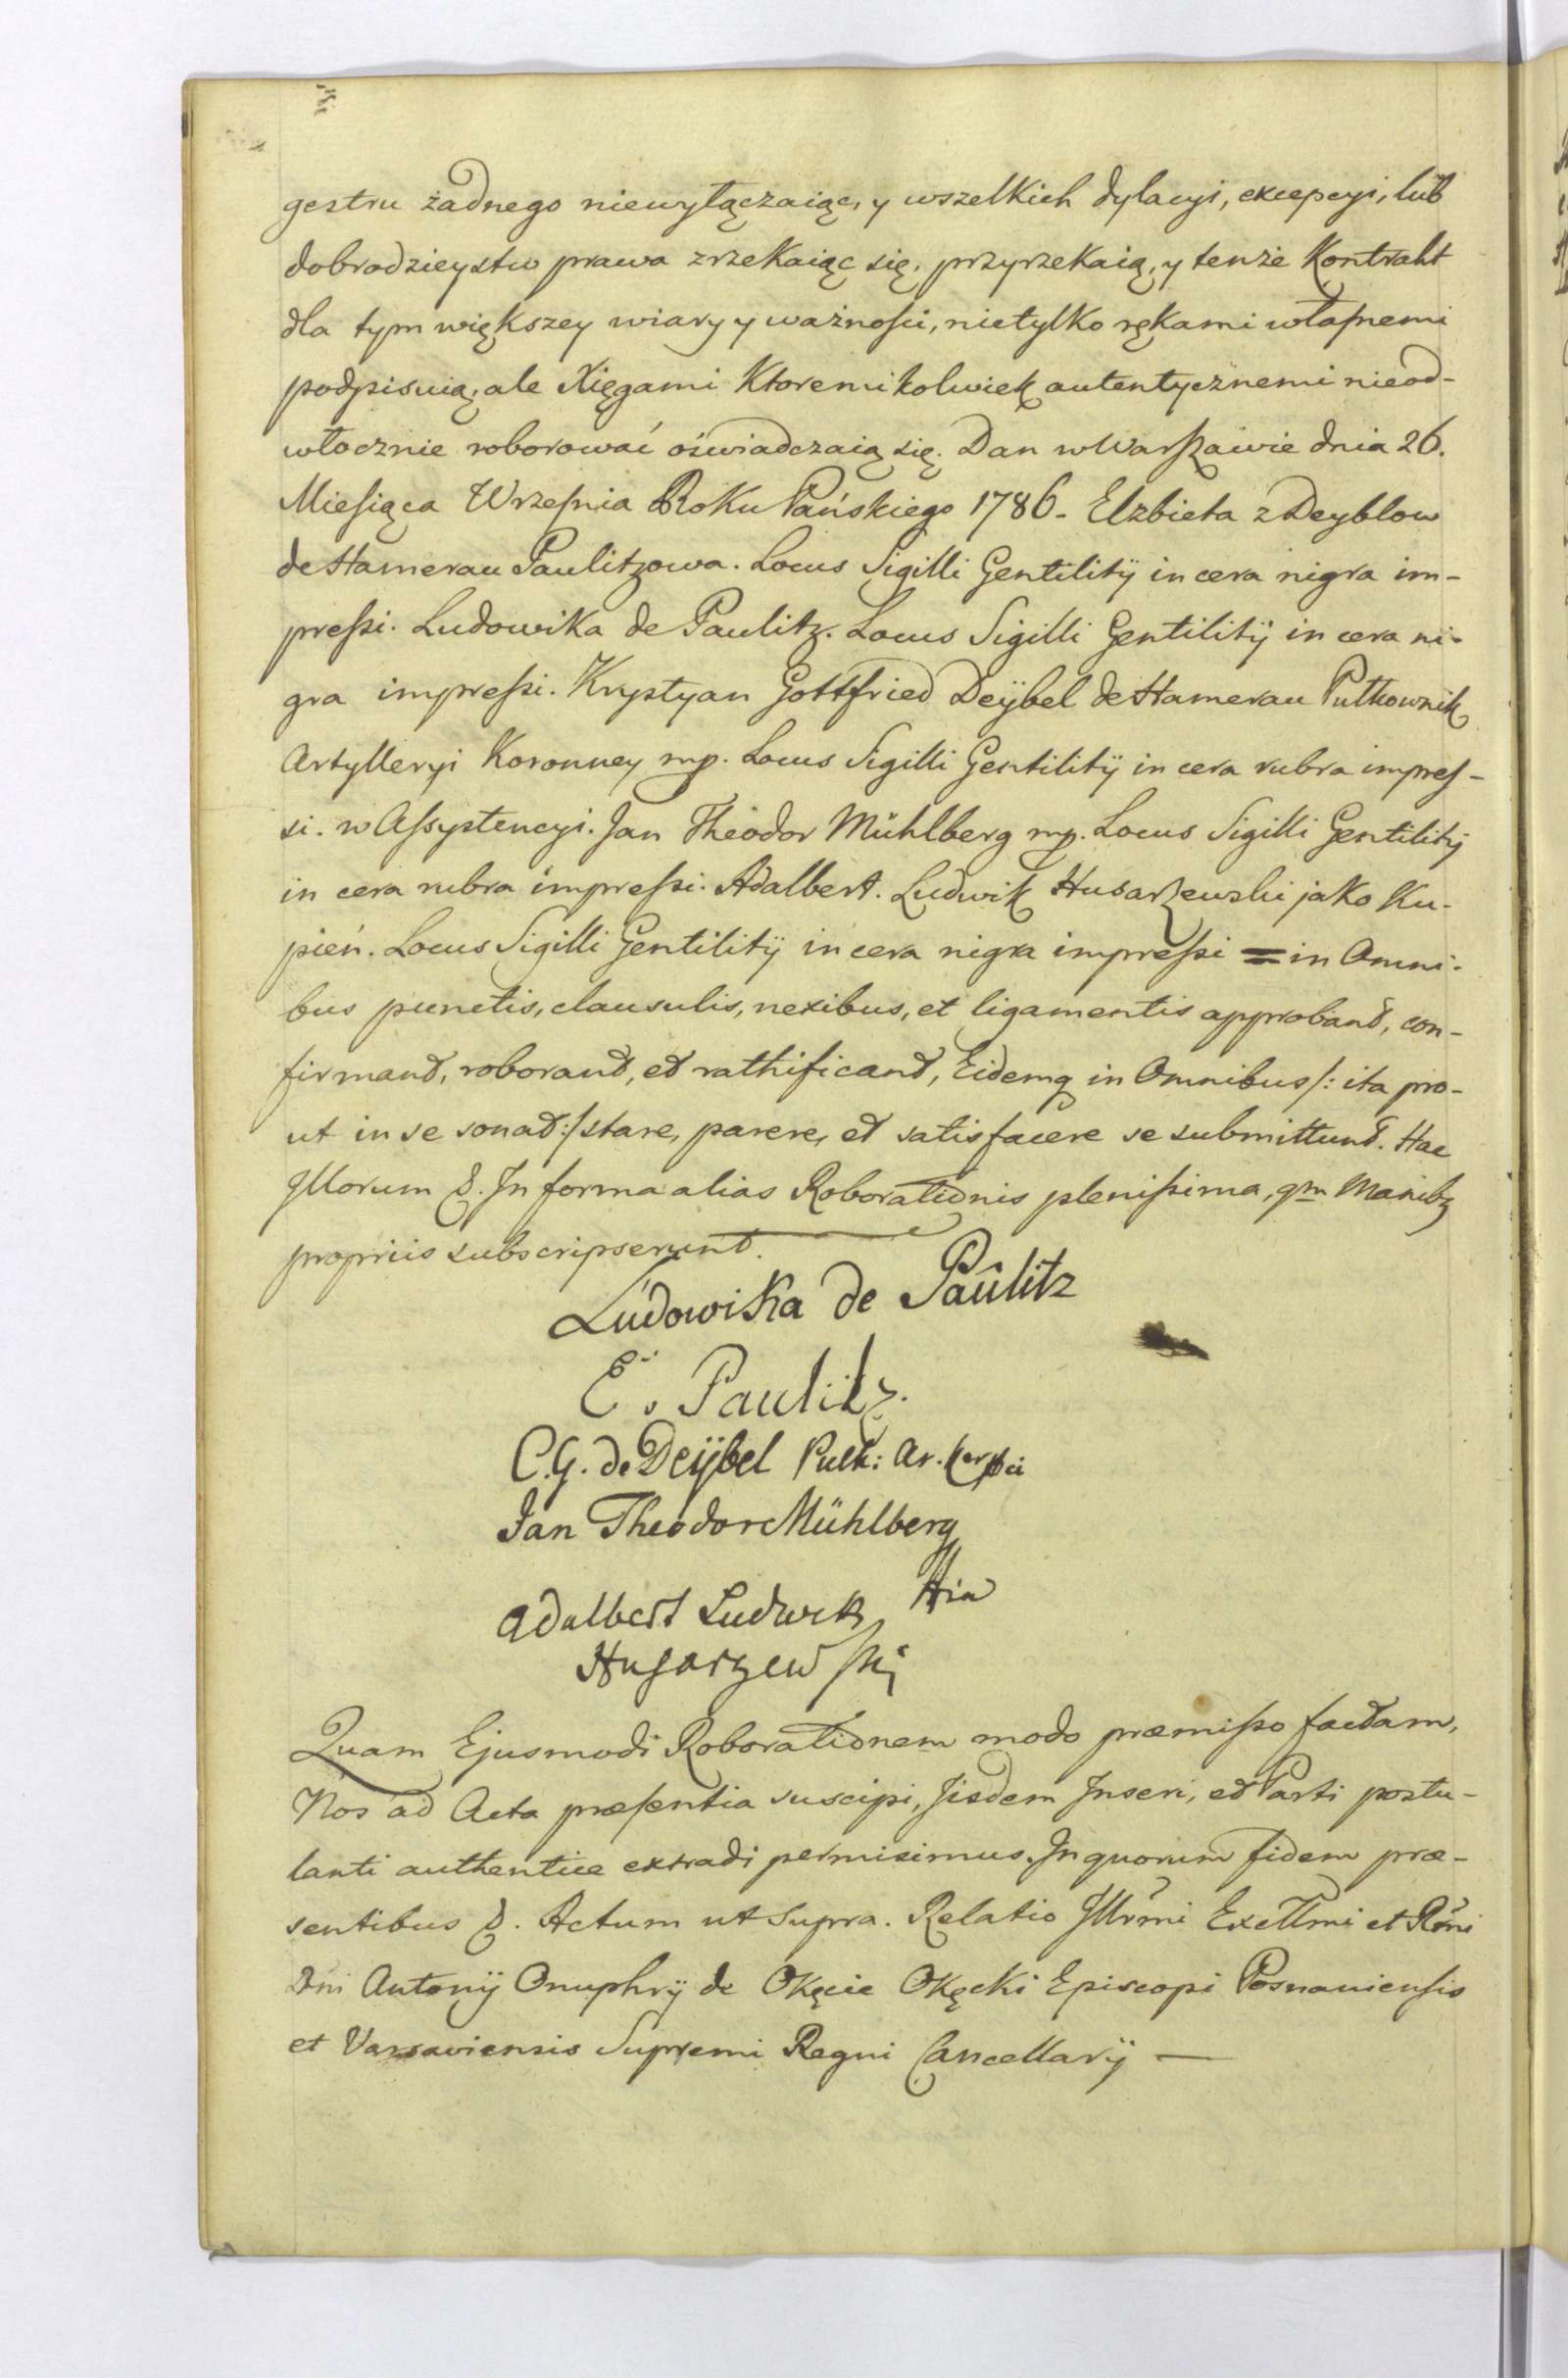 gestru żadnego niewyłączaiąc, y wszelkich dylacyi, excepcyi, lub
dobrodzieystw prawa zrzekaiąc się, przyrzekaią, y tenże Kontrakt
dla tym większey wiary y ważności, nietylko rękami własnemi
podpisuią, ale Xięgami Ktoremikolwiek autentycznemi nieod-
włocznie roborować oświadczaią się. Dan w Warszawie dnia 26.
Miesiąca Wrzesnia Roku Pańskiego 1786. Elzbieta z Deyblow
de Hamerau Paulitzowa. Locus Sigilli Gentilitij in cera nigra im-
pressi. Ludowika de Paulitz. Locus Sigilli Gentilitij in cera ni-
gra impressi. Krystyan Gottfried Deÿbel de Hamerau Pułkownik
Artylleryi Koronney mp. Locus Sigilli Gentilitij in cera rubra impres-
si. w Assystencyi. Jan Theodor Mühlberg mp. Locus Sigilli Gentilitij
in cera rubra impressi. Adalbert. Ludwik Husarzewski jako Ku-
pień. Locus Sigilli Gentilitij in cera nigra impressi = in Omni-
bus punctis, clausulis, nexibus, et ligamentis approbant, con-
firmant, roborant, et rathificant, Eidemq in Omnibus /: ita pro-
ut in se sonat :/ stare, parere, et satisfacere se submittunt. Hac
Illorum &. In forma alias Roborationis plenissima, qm Manibz
propriis subscripserunt.
Ludowika de Paulitz
E. Paulitz.
C. G. de Deÿbel Pulk: Ar.
Jan Theodor Mühlberg
Adalbert Ludwik
Husarzewski
Quam Ejusmodi Roborationem modo præmisso factam,
Nos ad Acta præsentia suscipi, Jisdem Inseri, et Parti postu-
lanti authentice extradi permisimus. In quorum fidem præ-
sentibus &. Actum ut Supra. Relatio Illrmi Excllmi et Rmi
Dni Antonij Onuphrij de Okęcie Okęcki Episcopi Posnaniensis
et Varsaviensis Supremi Regni Cancellarij —